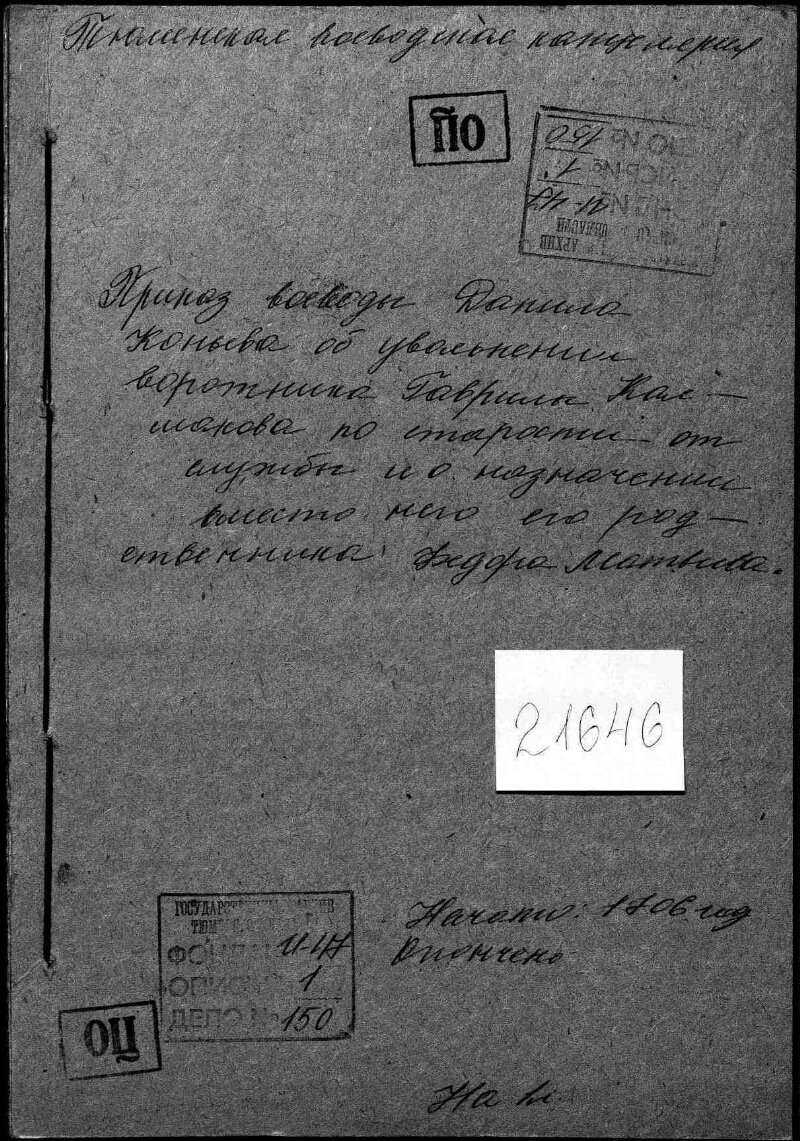 Тюменская воеводская канцелярия
ПО
ДЕЛО № 150
ОПИСЬ № 1
ФОНД № И-47
АРХИВ
Приказ воеводы Данила
Коныва об увольнении
воротника Гаврилы Кал-
макова по старости от
службы и о назначении
вместо него его род-
ственника Федора Матвива.
21646
ГОСУДАРСТВЕННЫЙ АРХИВ
ФОНД № И-47
ОПИСЬ № 1
ДЕЛО № 150
Начато: 1706 год
Окончено
ОЦ
На